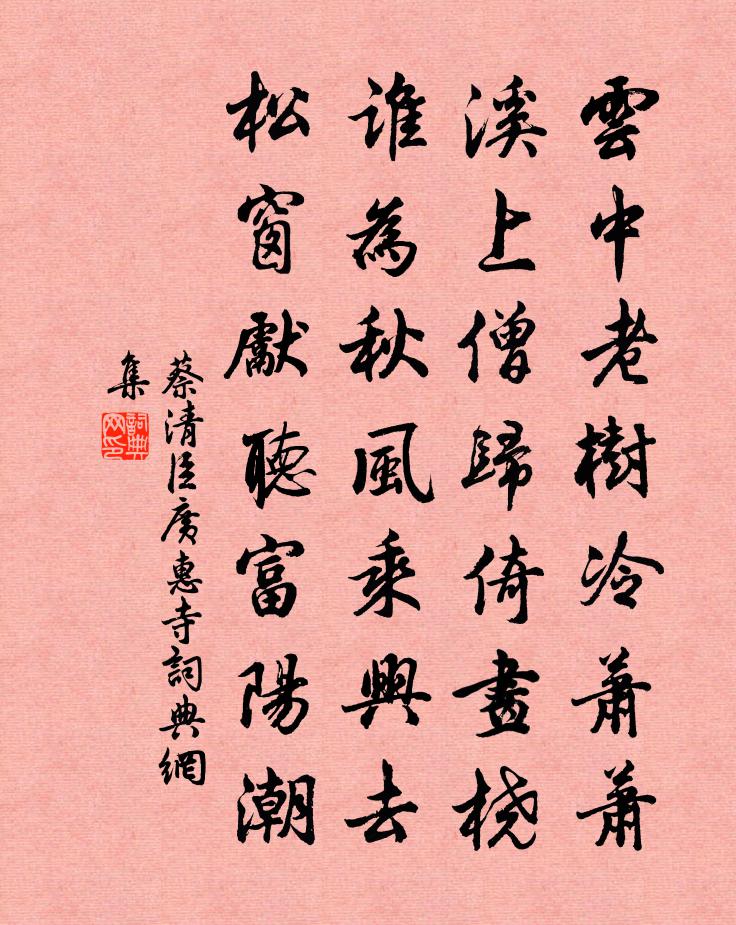 雲中老樹冷蕭蕭
溪上僧歸倚畫橈
誰為秋風乘興去
松窗獻聽富陽潮
蔡清臣廣惠寺詞典網
集
詞典
网印